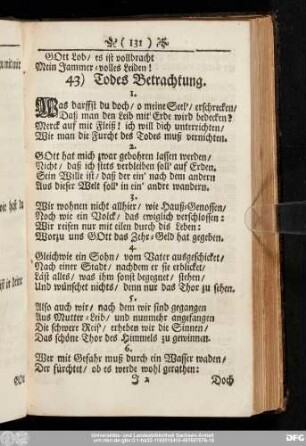 ( 131 )
GOtt Lob/ es ist vollbracht
Mein Jammer-volles Leiden!
43) Todes Betrachtung.
1.
Was darffst du doch/ o meine Seel'/ erschrecken/
Daß man den Leib mit Erde wird bedecken?
Merck auf mit Fleiß! ich will dich unterrichten/
Wie man die Furcht des Todes muß vernichten.
2.
GOtt hat mich zwar gebohren lassen werden/
Nicht/ daß ich stets verbleiben soll' auf Erden,
Sein Wille ist/ daß der ein' nach dem andern
Aus dieser Welt soll' in ein' andre wandern.
3.
Wir wohnen nicht allhier/ wie Hauß-Genossen/
Noch wie ein Volck/ das ewiglich verschlossen:
Wir reisen nur mit eilen durch diß Leben:
Worzu uns GOtt das Zehr-Geld hat gegeben.
4.
Gleichwie ein Sohn/ vom Vater ausgeschicket/
Nach einer Stadt/ nachdem er sie erblicket/
Läst alles/ was ihm sonst begegnet/ stehen/
Und wünschet nichts/ denn nur das Thor zu sehen.
5.
Also auch wir/ nach dem wir sind gegangen
Aus Mutter-Leib/ und nunmehr angefangen
Die schwere Reiß'/ erheben wir die Sinnen/
Das schöne Thor des Himmels zu gewinnen.
6.
Wer mit Gefahr muß durch ein Wasser waden/
Der fürchtet/ ob es werde wohl gerathen:
J 2
Doch
Universitäts- und Landesbibliothek Sachsen-Anhalt